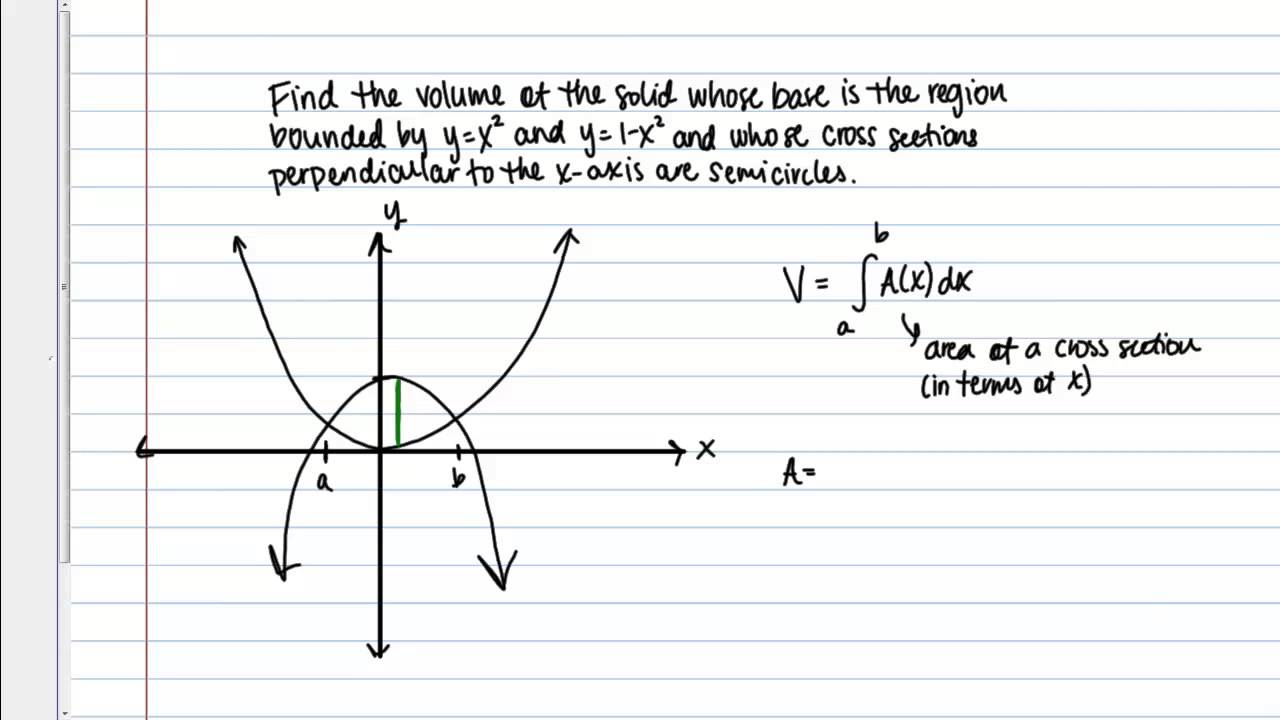 Find the volume of the solid whose base is the region
bounded by y=x² and y=1-x² and whose cross sections
perpendicular to the x-axis are semicircles.
y
b
V = ∫ A(x) dx
a
area of a cross section
(in terms of x)
x
a
b
A=